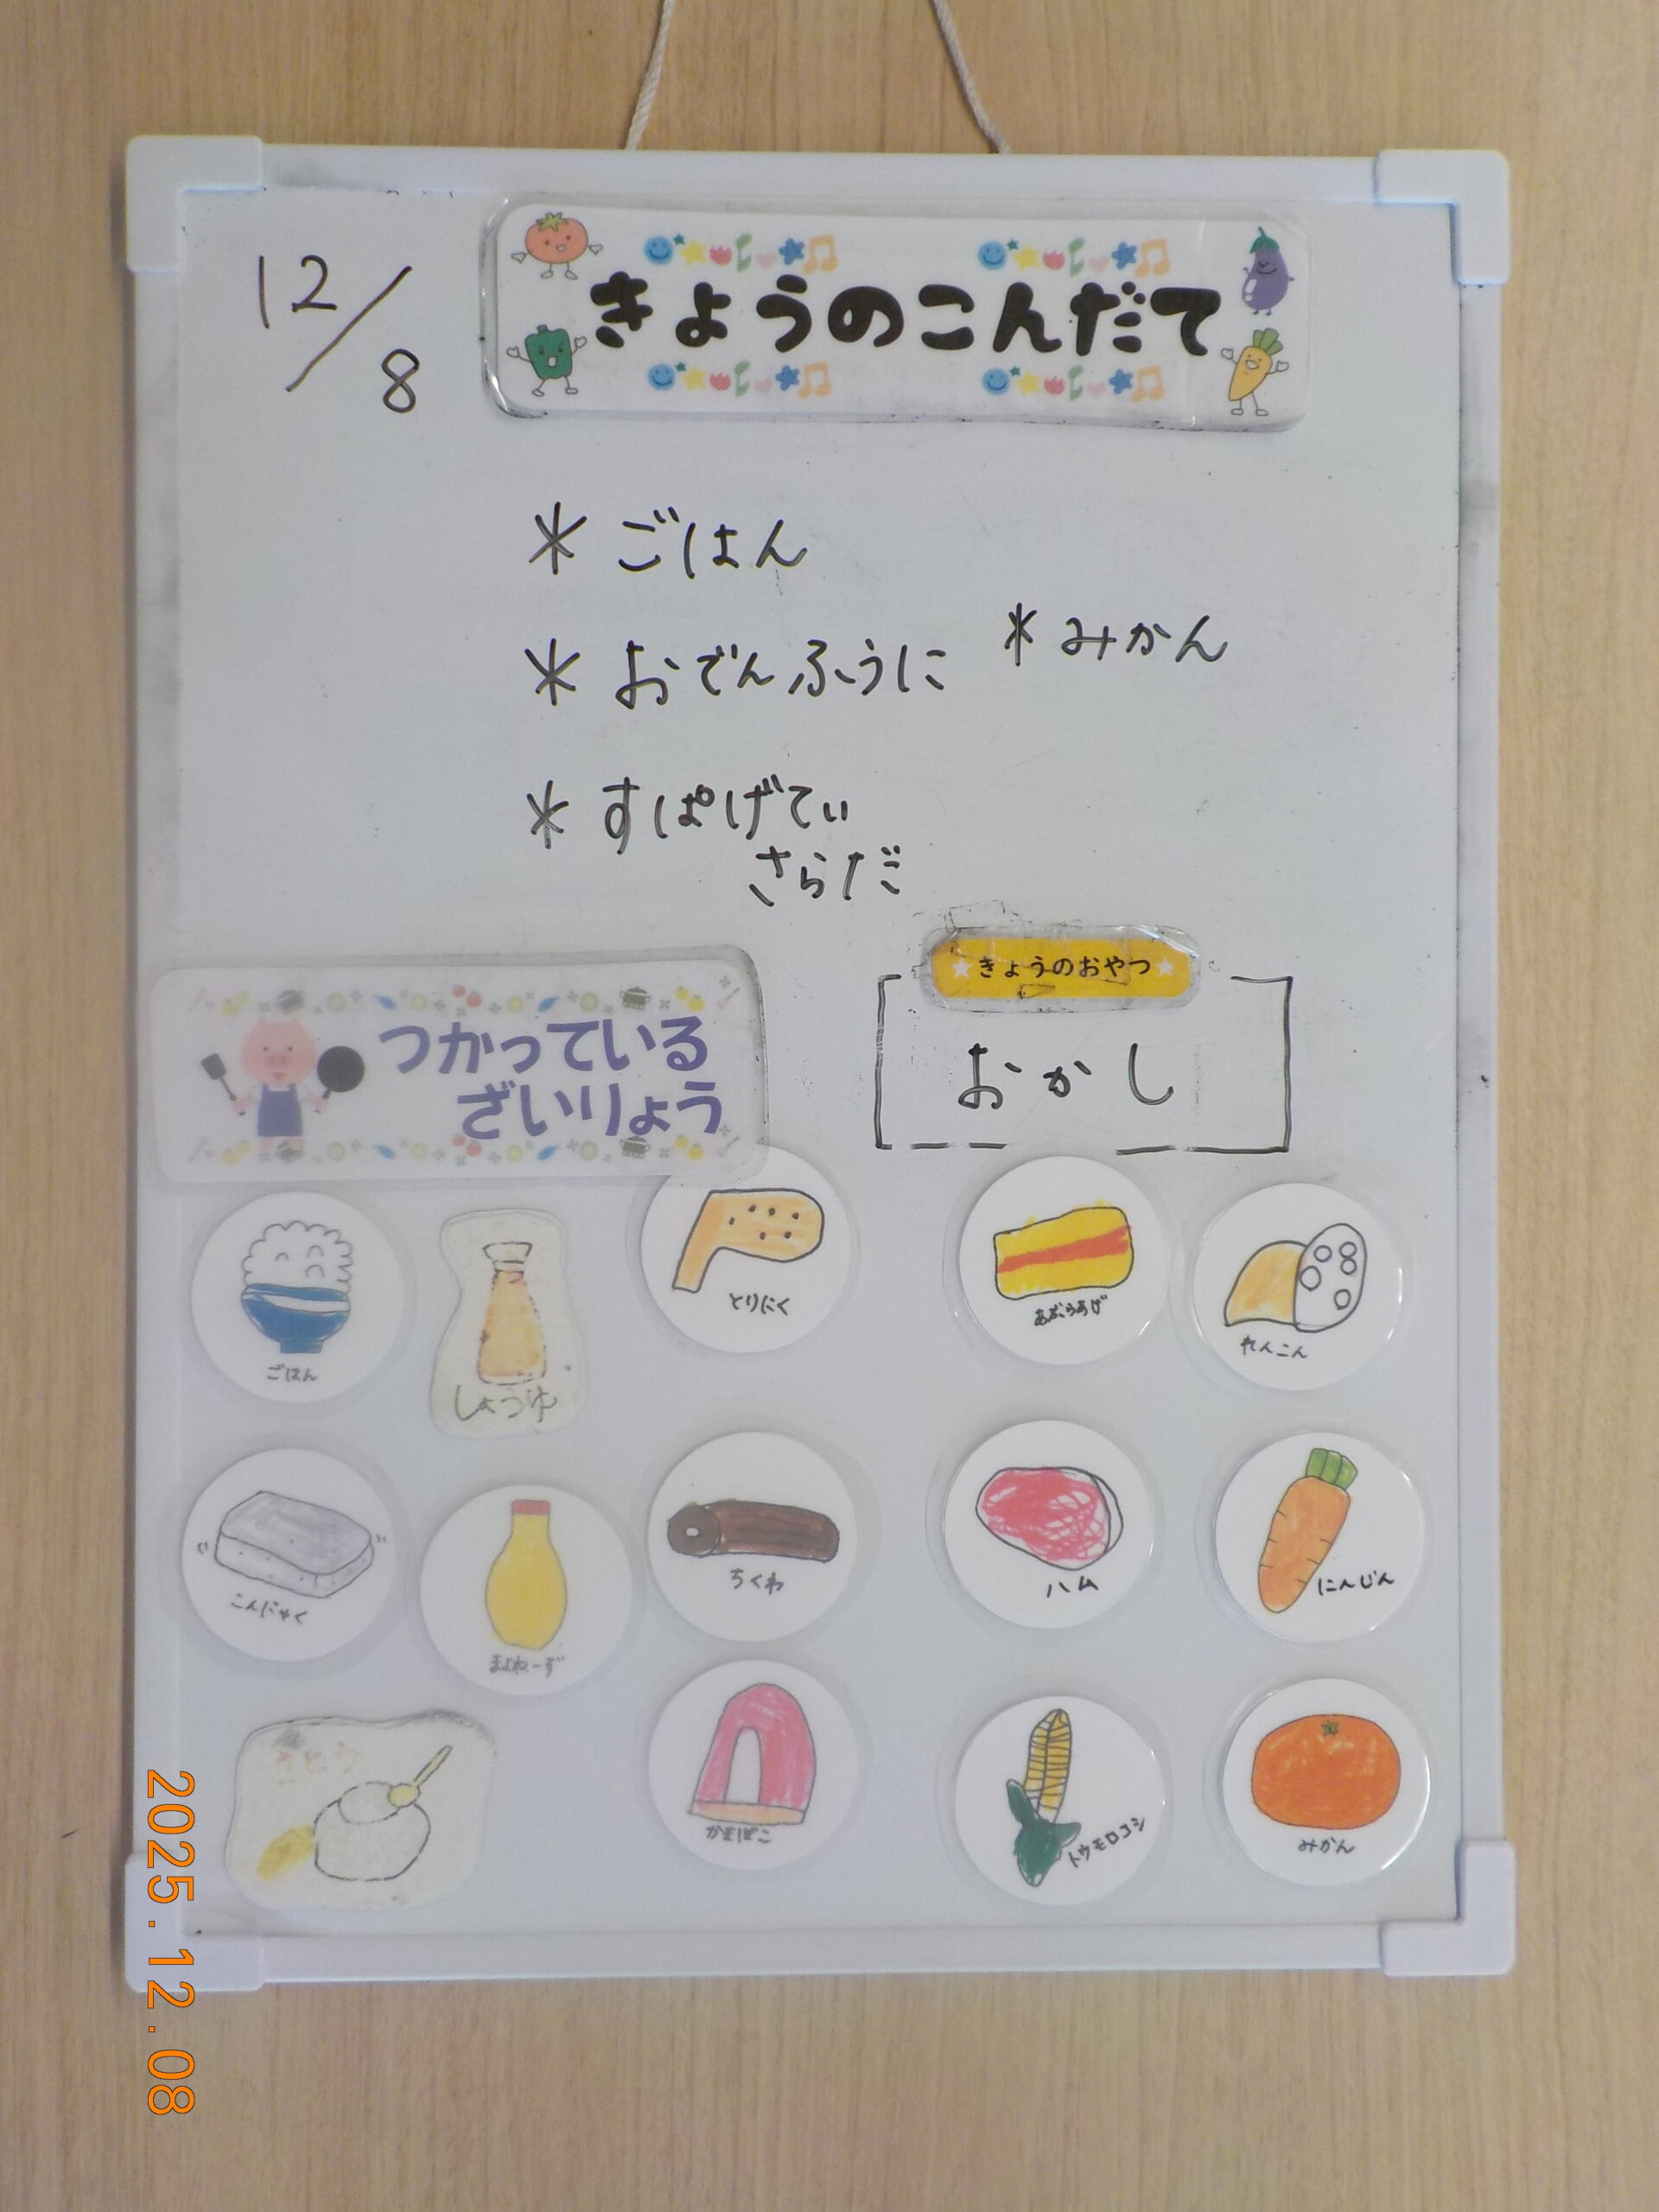 12/8
きょうのこんだて
* ごはん
* おでんふうに
* みかん
* すぱげてぃ
さらだ
つかっている
ざいりょう
きょうのおやつ
おかし
ごはん
しょうゆ
とりにく
あぶらあげ
れんこん
こんにゃく
まよねーず
ちくわ
ハム
にんじん
さとう
かまぼこ
トウモロコシ
みかん
2025.12.08